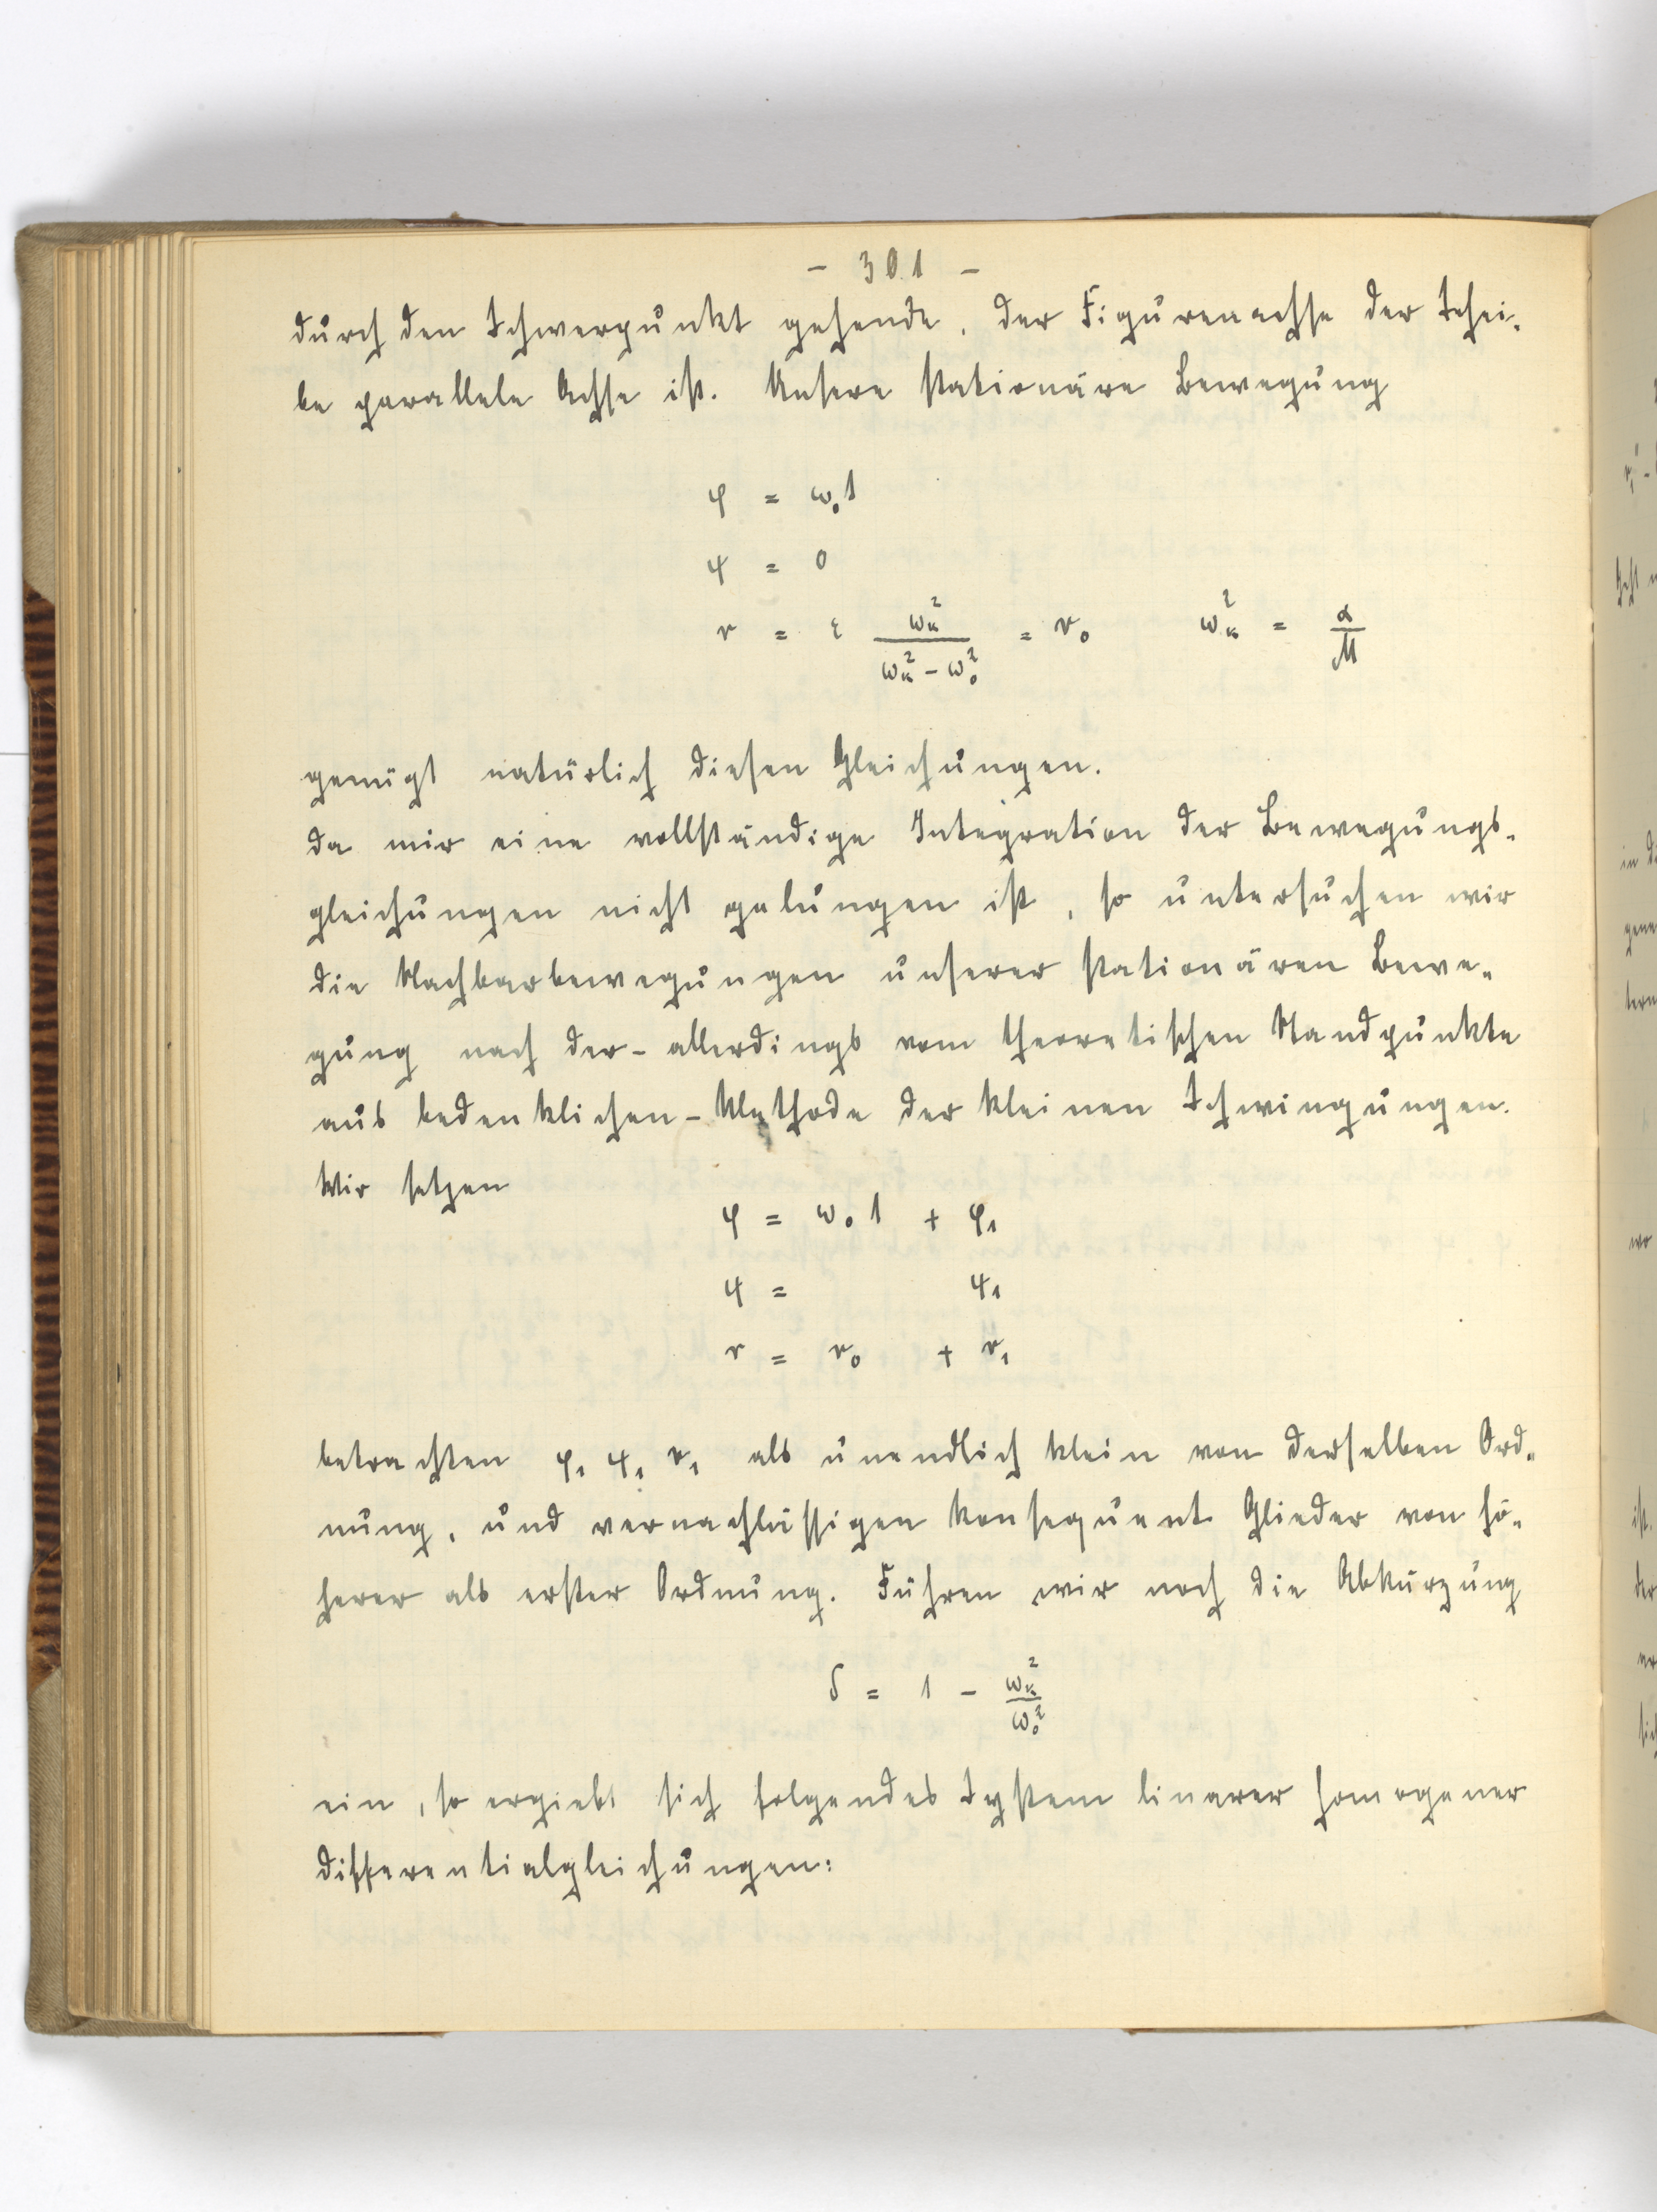 - 301 -
durch den Schwerpunkt gehende, der Figurenachse der Schei-
be parallele Achse ist. Unsere stationäre Bewegung
φ = ω₀t
ψ = 0
r = ε ωₖ² / (ωₖ² - ω₀²) = r₀ ωₖ² = α/M
genügt natürlich diesen Gleichungen.
da mir eine vollständige Integration der Bewegungs-
gleichungen nicht gelungen ist, so untersuchen wir
die Nachbarbewegungen unserer stationären Bewe-
gung nach der - allerdings vom theoretischen Standpunkte
aus bedenklichen - Methode der kleinen Schwingungen.
Wir setzen
φ = ω₀t + φ₁
ψ = ψ₁
r = r₀ + r₁
betrachten φ₁ ψ₁ r₁ als unendlich klein von derselben Ord-
nung, und vernachlässigen konsequent Glieder von hö-
herer als erster Ordnung. Führen wir noch die Abkürzung
δ = 1 - ωₖ²/ω₀²
ein, so ergiebt sich folgendes System linarer homogener
differentialgleichungen: